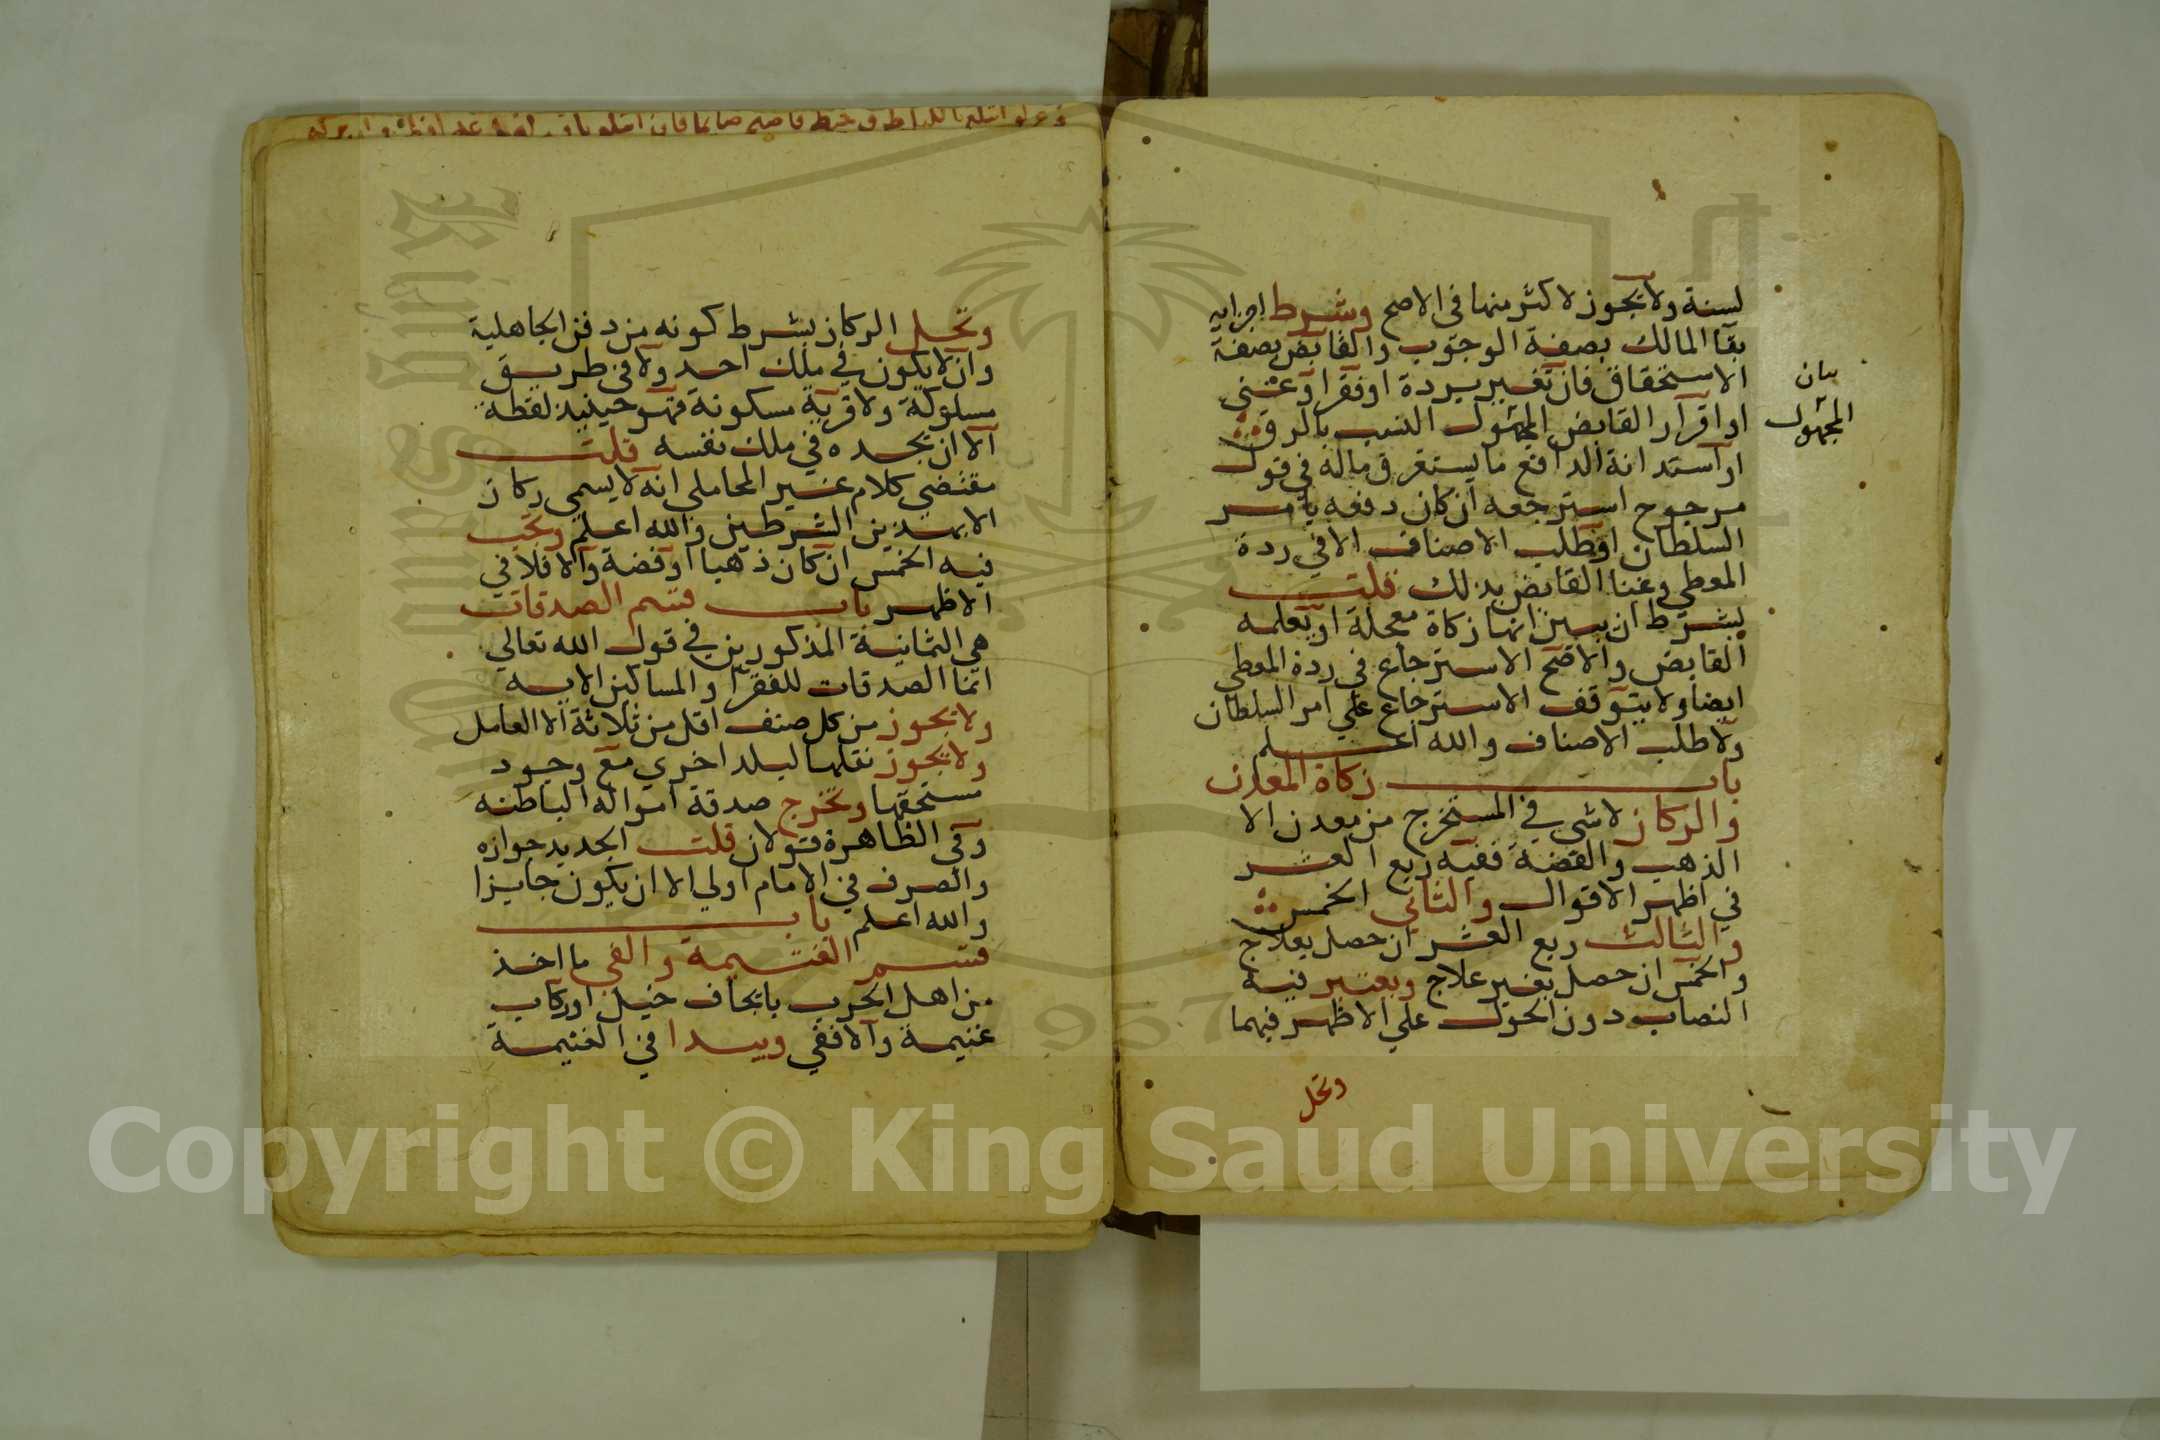 لسنة ولا يجوز لاكثر منها في الاصح وشرط اجزايه
بقا المالك بصفة الوجوب والقابض بصفة
الاستحقاق فان تغير بردة او فقر او غنى
او اقرار القابض المجهول النسب بالرق
او استدانة الدافع ما يستغرق ماله في قول
مرجوح استرجعه ان كان دفعه بامر
السلطان او طلب الاصناف الا في ردة
المعطي وغنا القابض بذلك قلت
بشرط ان يبين انها زكاة معجلة او يعلمه
القابض والاصح الاسترجاع في ردة المعطي
ايضا ولا يتوقف الاسترجاع علي امر السلطان
ولا طلب الاصناف والله اعلم
باب زكاة المعدن
والركاز لا شي في المستخرج من معدن الا
الذهب والفضة ففيه ربع العشر
في اظهر الاقوال والثاني الخمس
والثالث ربع العشر ان حصل بعلاج
والخمس ان حصل بغير علاج ويعتبر فيه
النصاب دون الحول علي الاظهر فيهما
وتحل
بيان
المجهول
وتحل الركاز بشرط كونه من دفن الجاهلية
وان لا يكون في ملك احد ولا في طريق
مسلوكة ولا قرية مسكونة فهو حينيذ لقطة
الا ان يجده في ملك نفسه قلت
مقتضي كلام غير المحاملي انه لا يسمي ركاز
الا بهذين الشرطين والله اعلم ويجب
فيه الخمس ان كان ذهبا او فضة والا فلا في
الاظهر باب قسم الصدقات
هي الثمانية المذكورين في قول الله تعالي
انما الصدقات للفقرا والمساكين الايه
ولا يجوز من كل صنف اقل من ثلاثة الا العامل
ولا يجوز نقلها لبلد اخري مع وجود
مستحقها وتخرج صدقة امواله الباطنه
وفي الظاهرة قولان قلت الجديد جوازه
والصرف في الامام اولي الا ان يكون جايزا
والله اعلم باب
قسم الغنيمة والفي ما اخذ
من اهل الحرب بايجاف خيل او ركاب
غنيمة والا ففي ويبدا في الغنيمة
King Saud University
1957
Copyright © King Saud University